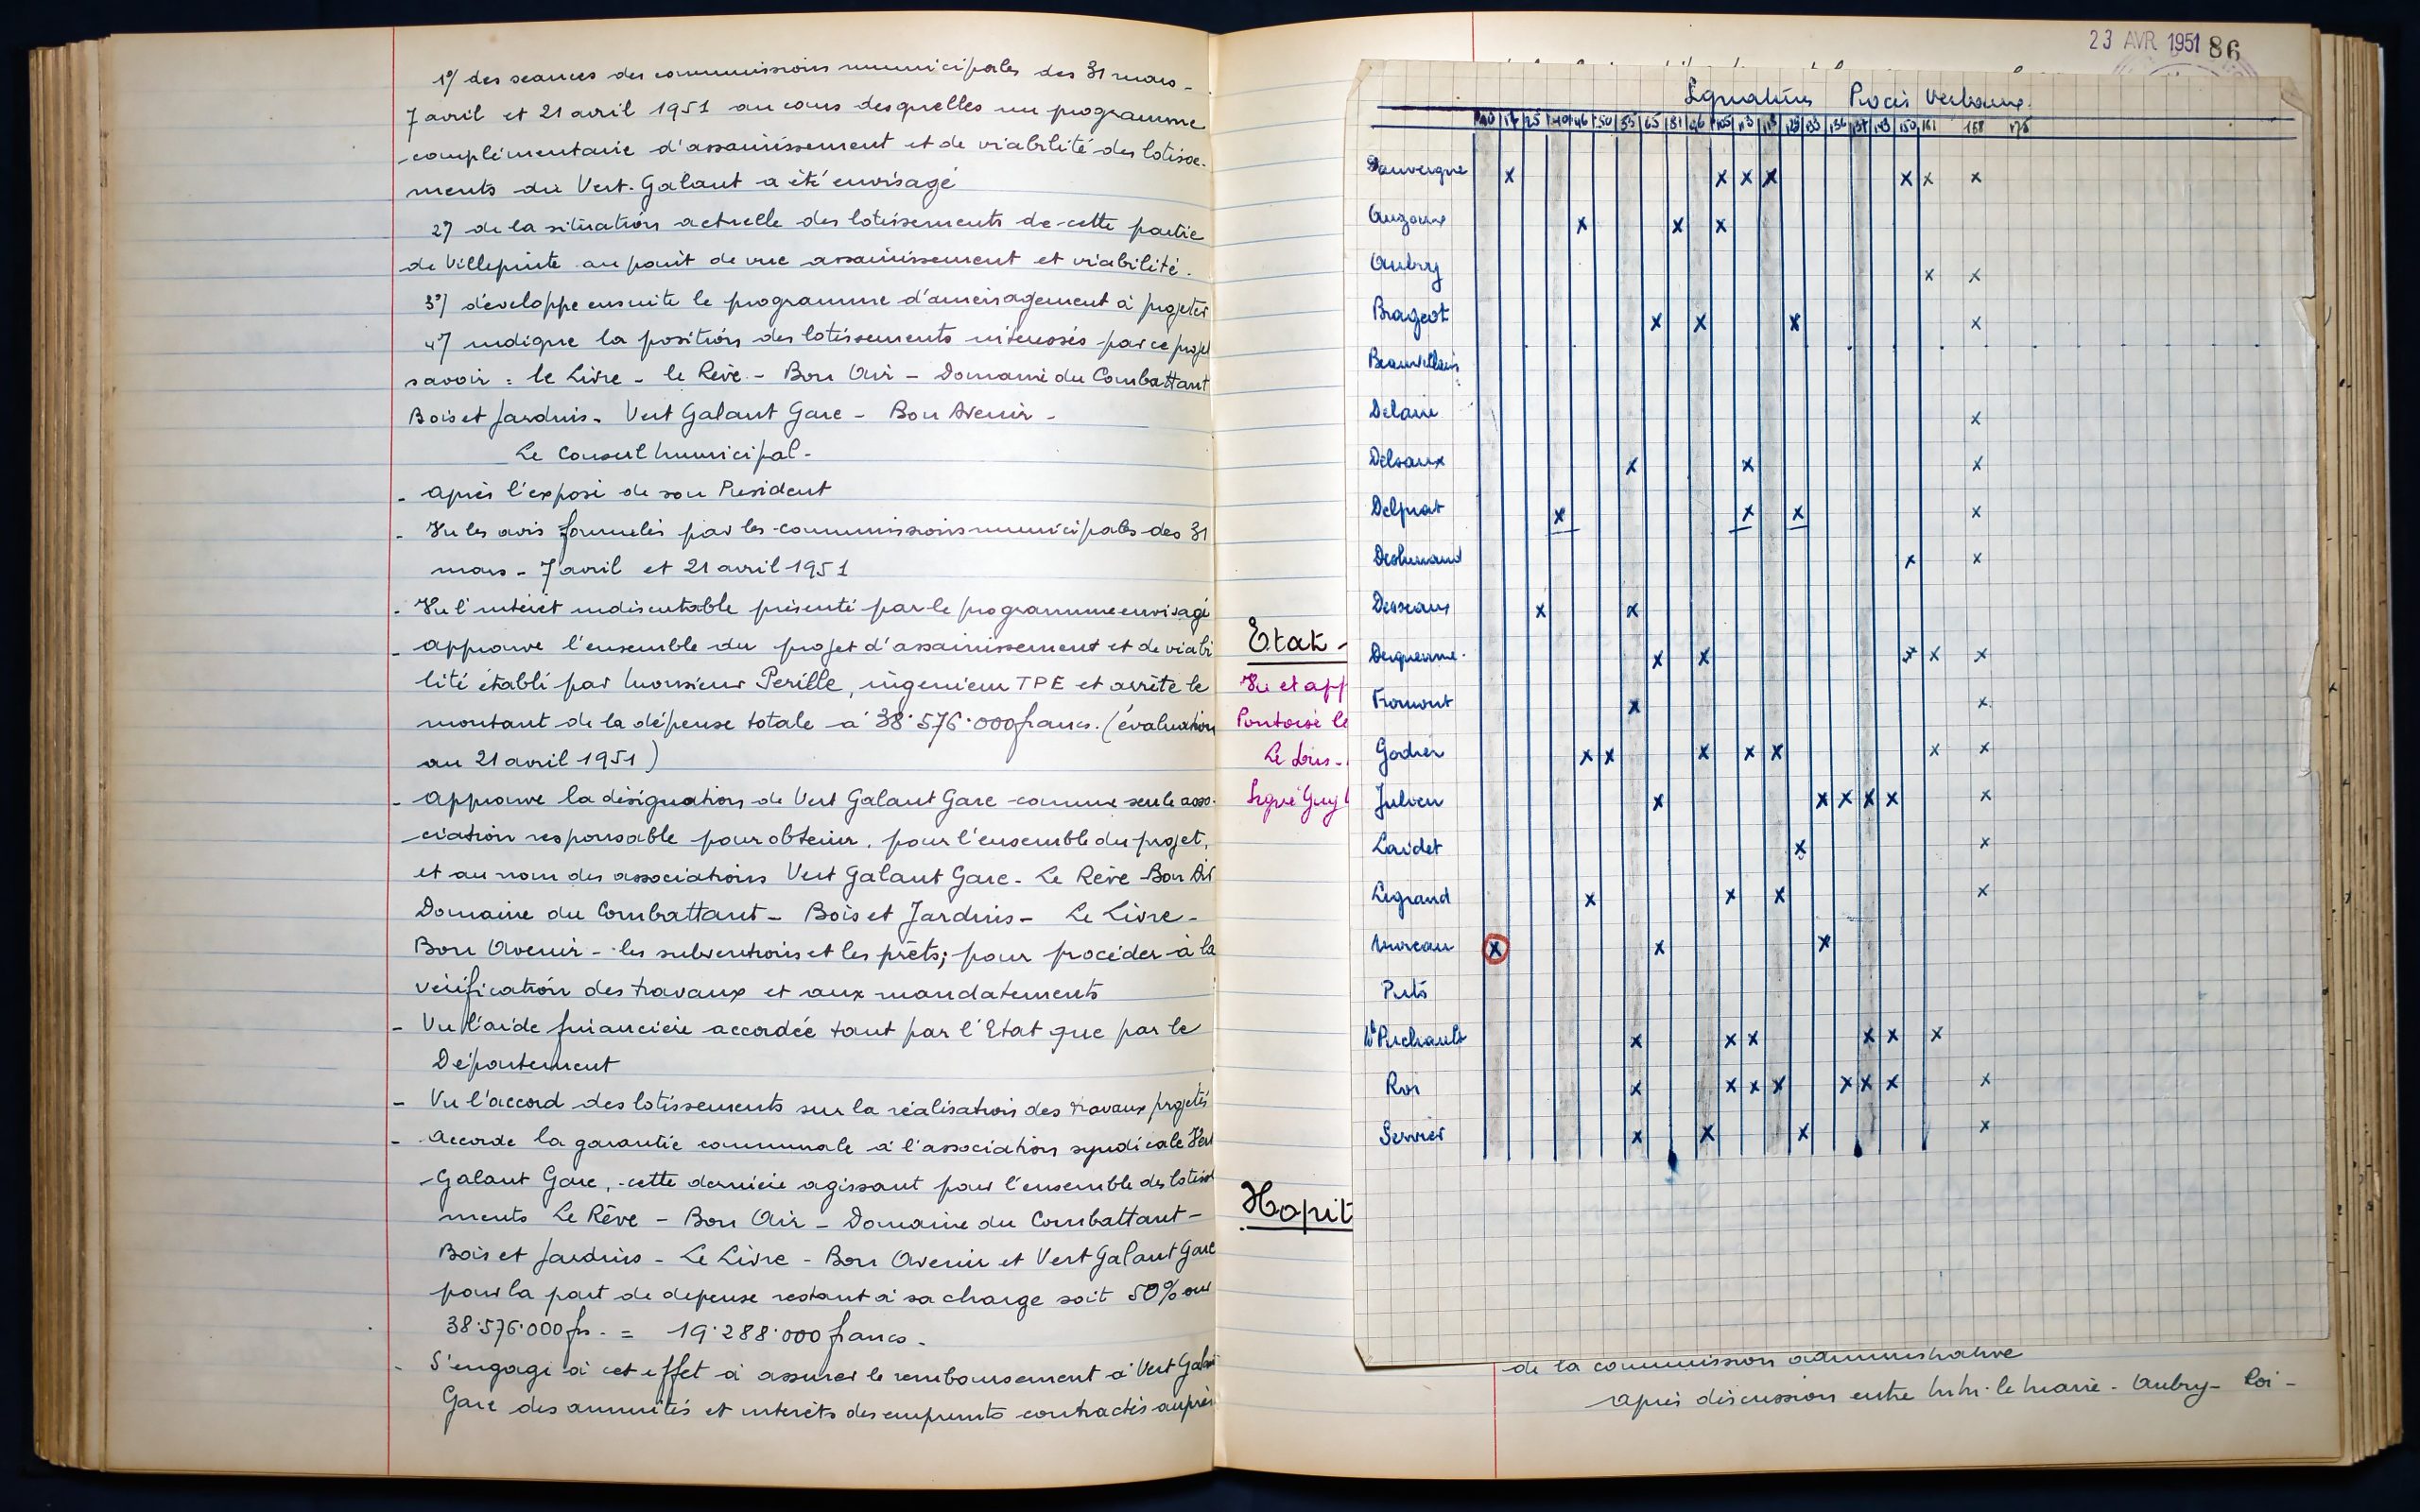 1°/ des seances des commissions municipales des 31 mars -
7 avril et 21 avril 1951 au cours desquelles un programme
complémentaire d'assainissement et de viabilité des lotisse-
ments du Vert-Galant a été envisagé
2°/ de la situation actuelle des lotissements de cette partie
de Villepinte au point de vue assainissement et viabilité.
3°/ développe ensuite le programme d'aménagement à projeter
4°/ indique la position des lotissements intéressés par ce projet
savoir : le Livre - le Rêve - Bon Air - Domaine du Combattant
Bois et Jardins - Vert Galant Gare - Bon Avenir -
Le Conseil Municipal -
- Après l'exposé de son President
- Vu les avis formulés par les commissions municipales des 31
mars - 7 avril et 21 avril 1951
- Vu l'intérêt indiscutable présenté par le programme envisagé
- Approuve l'ensemble du projet d'assainissement et de viabi
lité établi par Monsieur Perille, ingenieur TPE et arrête le
montant de la dépense totale à 38.576.000 francs. (évaluation
au 21 avril 1951)
- Approuve la désignation de Vert Galant Gare comme seule asso-
ciation responsable pour obtenir, pour l'ensemble du projet,
et au nom des associations Vert Galant Gare - Le Rêve - Bon Air
Domaine du Combattant - Bois et Jardins - Le Livre -
Bon Avenir - les subventions et les prêts; pour procéder à la
vérification des travaux et aux mandatements
- Vu l'aide financière accordée tant par l'Etat que par le
Département
- Vu l'accord des lotissements sur la réalisation des travaux projetés
- Accorde la garantie communale à l'association syndicale Vert
Galant Gare, cette dernière agissant pour l'ensemble des lotisse
ments Le Rêve - Bon Air - Domaine du Combattant -
Bois et Jardins - Le Livre - Bon Avenir et Vert Galant Gare
pour la part de depense restant à sa charge soit 50% sur
38.576.000 frs. = 19.288.000 francs -
- S'engage à cet effet à assurer le remboursement à Vert Galant
Gare des annuités et intérêts des emprunts contractés auprès
23 AVR 1951 86
Signatures Procès Verbaux
17 25 40 46 50 55 65 81 96 105 113 118 129 133 136 137 143 150 161 168 175
Sauvergne x x x x x x x
Auzanne x x x
Aubry x x
Brageot x x x x
Beauvillain
Delaire x
Delsaux x x x
Delprat x x x x
Deshumand x x
Desseaux x x
Dequenne x x x x x
Etat -
Vu et app
Pontoise le
Le Sous-
Signé Guy
Fromont x x
Godier x x x x x x x
Julien x x x x x x
Laidet x x
Legrand x x x x
Moreau x x x
Puts
Me Puchault x x x x x x
Roi x x x x x x x x
Servier x x x x
Hopit
de la commission administrative
après discussion entre M.M. le Maire - Aubry - Roi -